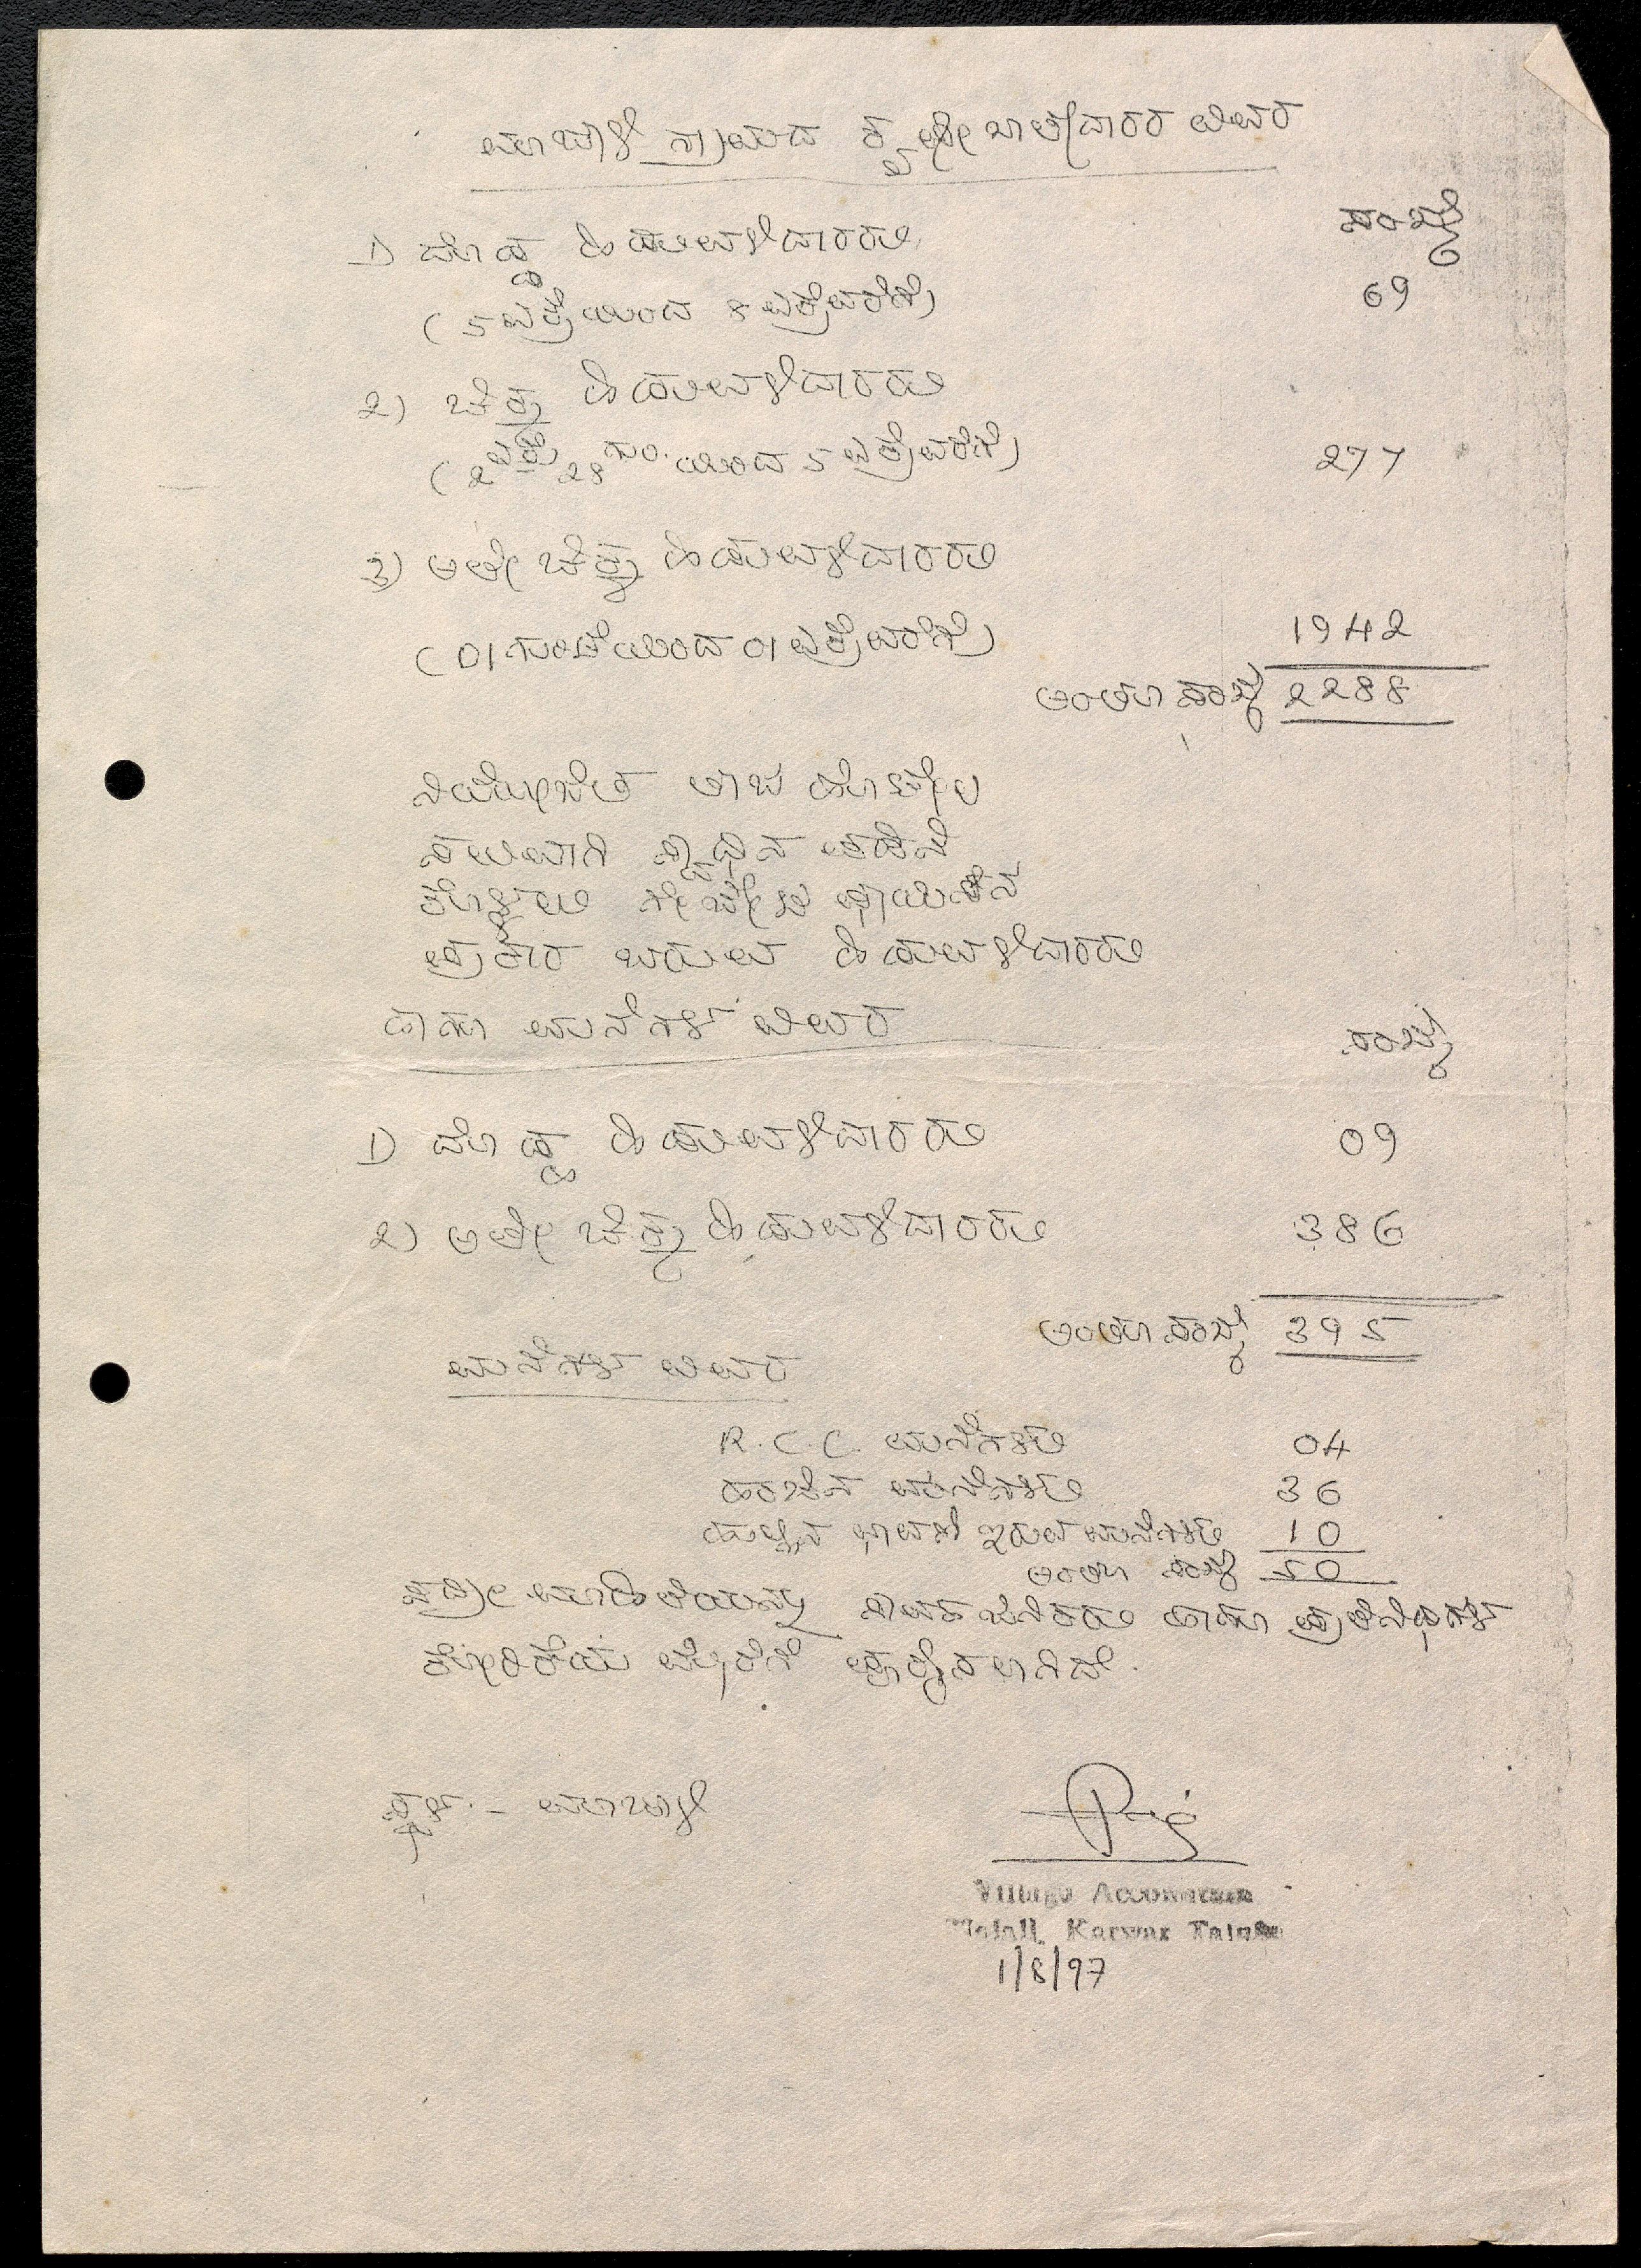 ಮಾಜಾಳಿ ಗ್ರಾಮದ ಕೃಷೀ ಖಾತೇದಾರರ ವಿವರ
ಸಂಖ್ಯೆ
1) ದೊಡ್ಡ ಹಿಡುವಳಿದಾರರು
(5 ಎಕ್ರೆಯಿಂದ 8 ಎಕ್ರೆವರೆಗೆ) 69
2) ಚಿಕ್ಕ ಹಿಡುವಳಿದಾರರು
(2 ಎಕ್ರೆ 28 ಗುಂ. ಯಿಂದ 5 ಎಕ್ರೆವರೆಗೆ) 277
3) ಅತೀ ಚಿಕ್ಕ ಹಿಡುವಳಿದಾರರು
(01 ಗುಂಟೆಯಿಂದ 01 ಎಕ್ರೆವರೆಗೆ) 1942
ಅಂತೂ ಸಂಖ್ಯೆ 2288
ನಿಯೋಜಿತ ತಾಜ ಹೊಟೇಲ
ಸಲುವಾಗಿ ಸ್ವಾಧೀನ ಪಡಿಸಿ
ಕೊಳ್ಳಲು ಗೇಜೇಟ
ಪ್ರಕಾರ ಬರುವ ಹಿಡುವಳಿದಾರರು
ಹಾಗೂ ಮನೆಗಳ ವಿವರ
ಸಂಖ್ಯೆ
1) ದೊಡ್ಡ ಹಿಡುವಳಿದಾರರು 09
2) ಅತೀ ಚಿಕ್ಕ ಹಿಡುವಳಿದಾರರು 386
ಅಂತೂ ಸಂಖ್ಯೆ 395
ಮನೆಗಳ ವಿವರ
R.C.C. ಮನೆಗಳು 04
ಹಂಚಿನ ಮನೆಗಳು 36
ಹುಲ್ಲಿನ ಛಾವಣಿ ಇರುವ ಮನೆಗಳು 10
ಅಂತೂ ಸಂಖ್ಯೆ 50
ಸದ್ರೀ ಮಾಹಿತಿಯನ್ನು ಸಾರ್ವಜನಿಕರು ಹಾಗೂ ಪ್ರತಿನಿಧಿಗಳ
ಕೋರಿಕೆಯ ಮೇರೆಗೆ
ಸ್ಥಳ. - ಮಾಜಾಳಿ
Village Accountant
Majali, Karwar Taluka
1/8/97